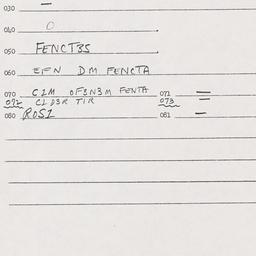 030 —
040 O
050 FENCT3S
060 EFN DM FENCTA
070 C2M OF3N3M FENTA 071 —
072 CLD3R TIR 073 —
080 ROS1 081 —